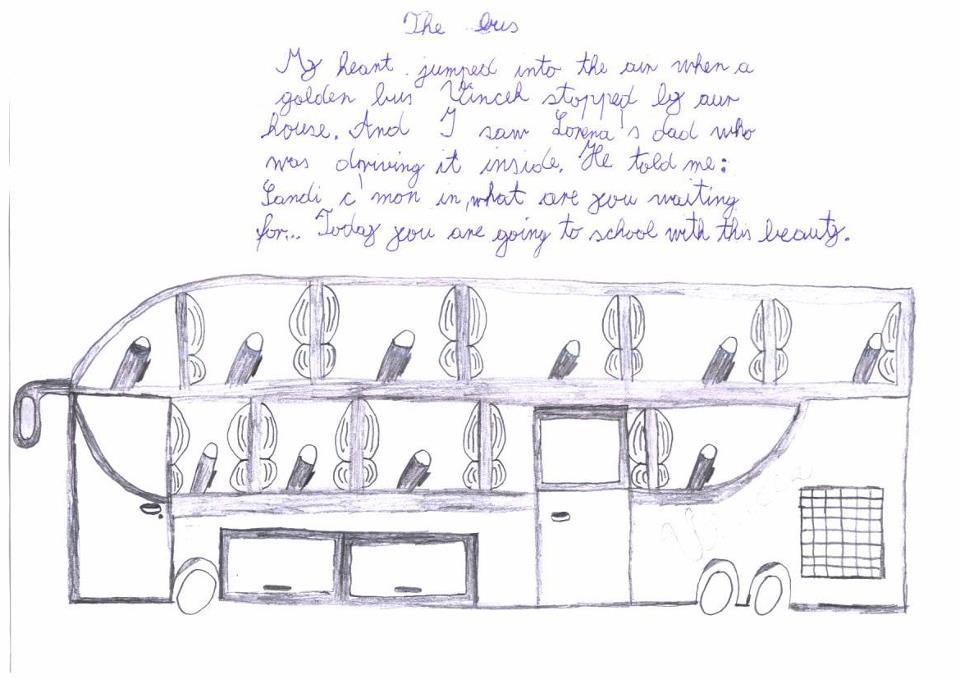 The bus
My heart jumped into the air when a
golden bus Vincek stopped by our
house. And I saw Lorena's dad who
was driving it inside. He told me:
Sandi c'mon in, what are you waiting
for... Today you are going to school with this beauty.